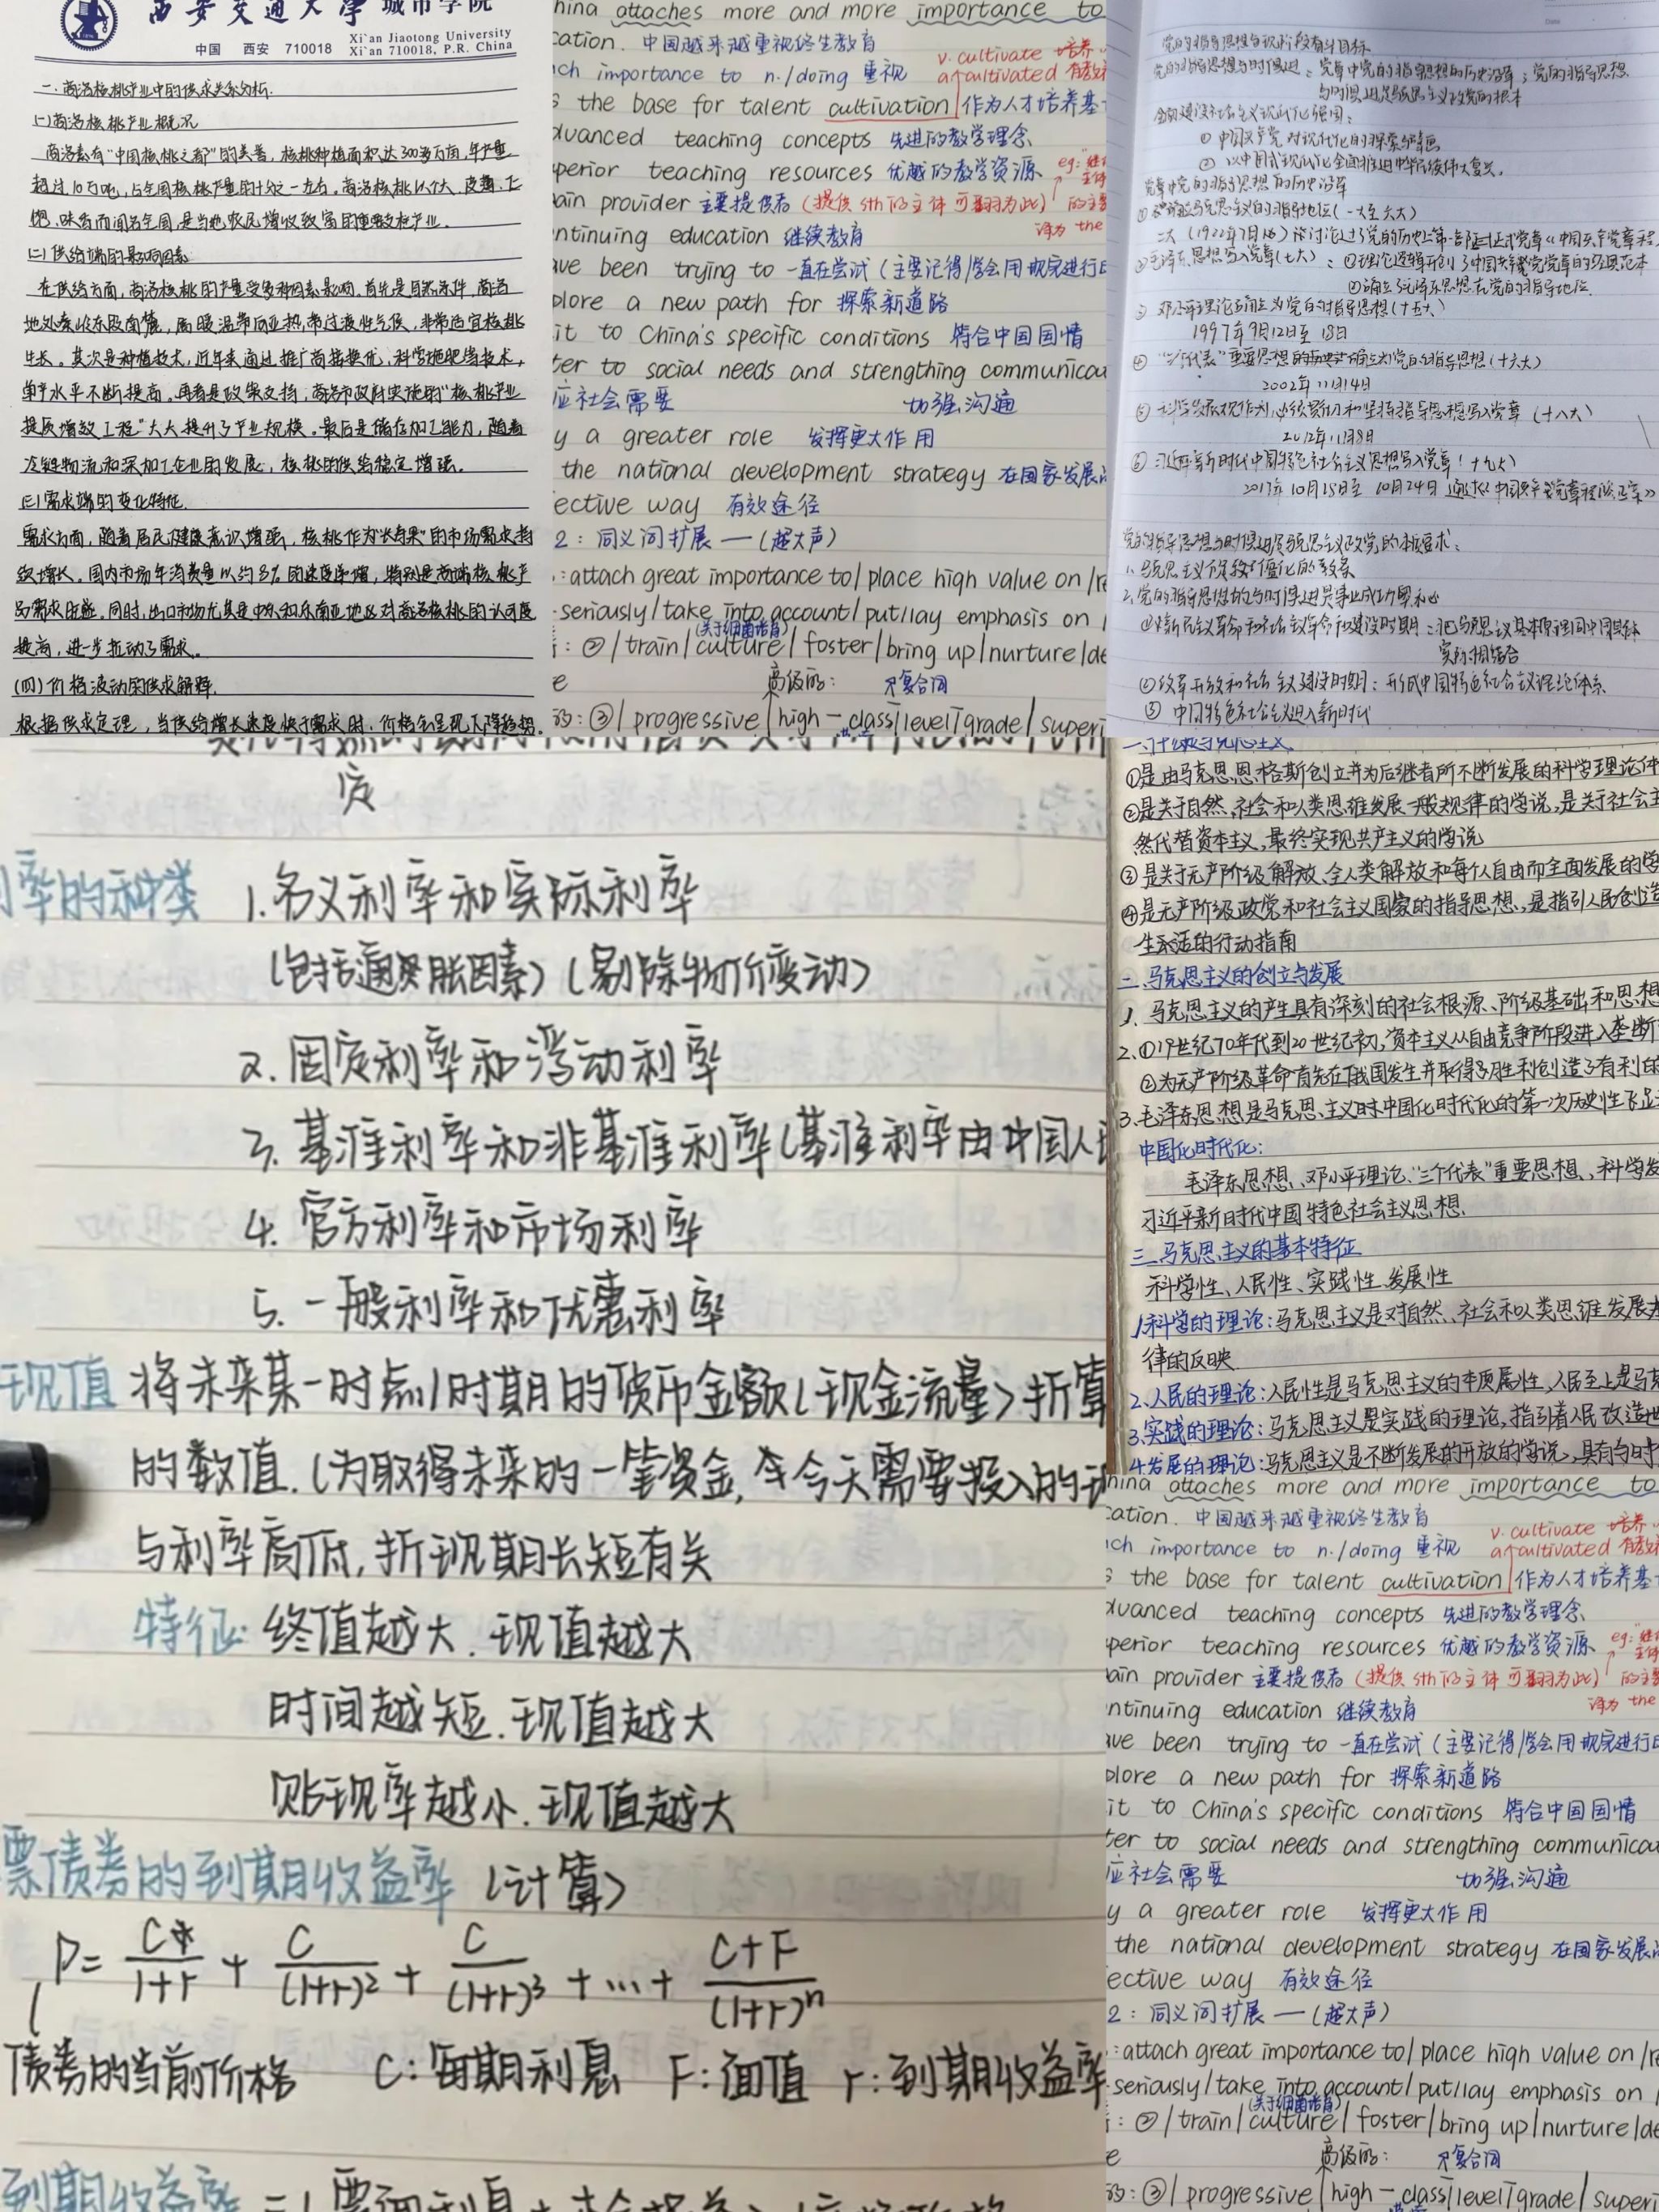 西安交通大学 城市学院
中国 西安 710018 Xi'an Jiaotong University
Xi'an 710018, P.R. China
一、商洛核桃产业中的供求关系分析.
(一)商洛核桃产业概况
商洛素有“中国核桃之都”的美誉，核桃种植面积达300多万亩，年产量
超过10万吨，占全国核桃产量的十分之一左右。商洛核桃以个大、皮薄、仁
饱、味香而闻名全国,是当地农民增收致富的重要支柱产业。
(二)供给端的影响因素
在供给方面，商洛核桃的产量受多种因素影响。首先是自然条件，商洛
地处秦岭东段南麓，属暖温带向亚热带过渡性气候，非常适宜核桃
生长。其次是种植技术，近年来通过推广高接换优，科学施肥等技术，
单产水平不断提高。再者是政策支持，商洛市政府实施的“核桃产业
提质增效工程”大大提升了产业规模。最后是储存加工能力，随着
冷链物流和深加工企业的发展，核桃的供给稳定增强。
(三)需求端的变化特征
需求方面，随着居民健康意识增强，核桃作为“长寿果”的市场需求持
续增长。国内市场年消费量以约8%的速度递增，特别是高端核桃产
品需求旺盛。同时，出口市场尤其是中东和东南亚地区对商洛核桃的认可度
提高，进一步拉动了需求。
(四)价格波动的供求解释.
根据供求定理，当供给增长速度快于需求时，价格会呈现下降趋势.
hina attaches more and more importance to
cation. 中国越来越重视终生教育
v. cultivate 培养
ich importance to n./doing 重视 a. cultivated 有教
s the base for talent cultivation 作为人才培养基
dvanced teaching concepts 先进的教学理念
perior teaching resources 优越的教学资源 eg:
ain provider 主要提供者 (提供 sth 的主体可翻为此) 的主要
ntinuing education 继续教育 译为 the
ave been trying to 一直在尝试 (主要记得/学会用现完进行
plore a new path for 探索新道路
it to China's specific conditions 符合中国国情
ter to social needs and strengthing communica
应社会需要 加强沟通
y a greater role 发挥更大作用
the national development strategy 在国家发展
ective way 有效途径
2: 同义词扩展 — (超大声)
:attach great importance to/ place high value on /re
seriously/take into account/ put/lay emphasis on
(关于细菌培育)
: ②/ train/ culture/ foster/ bring up/ nurture/de
e 高级的: 只复合词
的: ③/ progressive/ high-class/level/grade/ superi
党的指导思想与现阶段奋斗目标
党的指导思想与时俱进: 党章中党的指导思想的历史沿革; 党的指导思想
与时俱进是马克思主义政党的根本
全面建设社会主义现代化强国:
① 中国共产党对现代化的探索与擘画
② 以中国式现代化全面推进中华民族伟大复兴。
党章中党的指导思想的历史沿革
马克思主义的指导地位(一大至六大)
二大 (1922年7月16) 讨论过了党的历史上第一部正式党章《中国共产党章程
② 毛泽东思想写入党章(七大): ①理论逻辑开创了中国共产党党章的
②确立了毛泽东思想在党的指导地位.
③ 邓小平理论 党的指导思想(十五大)
1997年9月12日至18日
④ “三个代表”重要思想 确立为党的指导思想(十六大)
2002年11月14日
⑤ 科学发展观作为 必须 坚持指导思想写入党章 (十八大)
2012年11月8日
⑥ 习近平新时代中国特色社会主义思想写入党章 (十九大)
2017年10月18日至10月24日 通过《中国共产党章程(修正案)》
党的指导思想与时俱进是马克思主义政党的根本要求:
1. 马克思主义 僵化的教条
2. 党的指导思想的与时俱进是事业成功
①新民主义革命和社会主义革命和建设时期: 把马克思主义基本原理同中国具体
实际相结合
② 改革开放和社会主义建设时期: 形成中国特色社会主义理论体系
③ 中国特色社会主义进入新时代
度
利率的种类 1.名义利率和实际利率
(包括通货膨胀因素) (剔除物价变动)
2. 固定利率和浮动利率
3. 基准利率和非基准利率(基准利率由中国人民
4. 官方利率和市场利率
5. 一般利率和优惠利率
现值 将未来某一时点/时期的货币金额(现金流量)折算
的数值. (为取得未来的一笔资金, 今天需要投入的
与利率高低, 折现期长短有关
特征: 终值越大. 现值越大
时间越短. 现值越大
贴现率越小. 现值越大
票债券的到期收益率 (计算)
P= C/1+r + C/(1+r)² + C/(1+r)³ + ... + C+F/(1+r)ⁿ
债券的当前价格 C: 每期利息 F: 面值 r: 到期收益率
到期收益率 =
①是由马克思恩格斯创立并为后继者所不断发展的科学理论体
②是关于自然、社会和人类思维发展一般规律的学说, 是关于社会主
然代替资本主义, 最终实现共产主义的学说
③是关于无产阶级解放、全人类解放和每个人自由而全面发展的学
④是无产阶级政党和社会主义国家的指导思想, 是指引人民创造
生活的行动指南
二、马克思主义的创立与发展
1. 马克思主义的产生具有深刻的社会根源、阶级基础和思想
2. ①19世纪70年代到20世纪初, 资本主义从自由竞争阶段进入垄断
②为无产阶级革命首先在俄国发生并取得胜利创造了有利的
3. 毛泽东思想是马克思主义时中国化时代化的第一次历史性飞跃
中国化时代化:
毛泽东思想、邓小平理论、“三个代表”重要思想、科学发
习近平新时代中国特色社会主义思想.
三、马克思主义的基本特征
科学性、人民性、实践性、发展性
1.科学的理论: 马克思主义是对自然、社会和人类思维发展
律的反映
2.人民的理论: 人民性是马克思主义的本质属性, 人民至上是马克
3.实践的理论: 马克思主义是实践的理论, 指引着人民改造世
4.发展的理论: 马克思主义是不断发展的开放的学说, 具有与时
hina attaches more and more importance to
cation. 中国越来越重视终生教育
v. cultivate 培养
ich importance to n./doing 重视 a. cultivated 有教
s the base for talent cultivation 作为人才培养基
dvanced teaching concepts 先进的教学理念
perior teaching resources 优越的教学资源 eg:
ain provider 主要提供者 (提供 sth 的主体可翻为此) 的主要
ntinuing education 继续教育 译为 the
ave been trying to 一直在尝试 (主要记得/学会用现完进行
plore a new path for 探索新道路
it to China's specific conditions 符合中国国情
ter to social needs and strengthing communica
应社会需要 加强沟通
y a greater role 发挥更大作用
the national development strategy 在国家发展
ective way 有效途径
2: 同义词扩展 — (超大声)
:attach great importance to/ place high value on /re
seriously/take into account/ put/lay emphasis on
(关于细菌培育)
: ②/ train/ culture/ foster/ bring up/ nurture/de
e 高级的: 只复合词
的: ③/ progressive/ high-class/level/grade/ superi